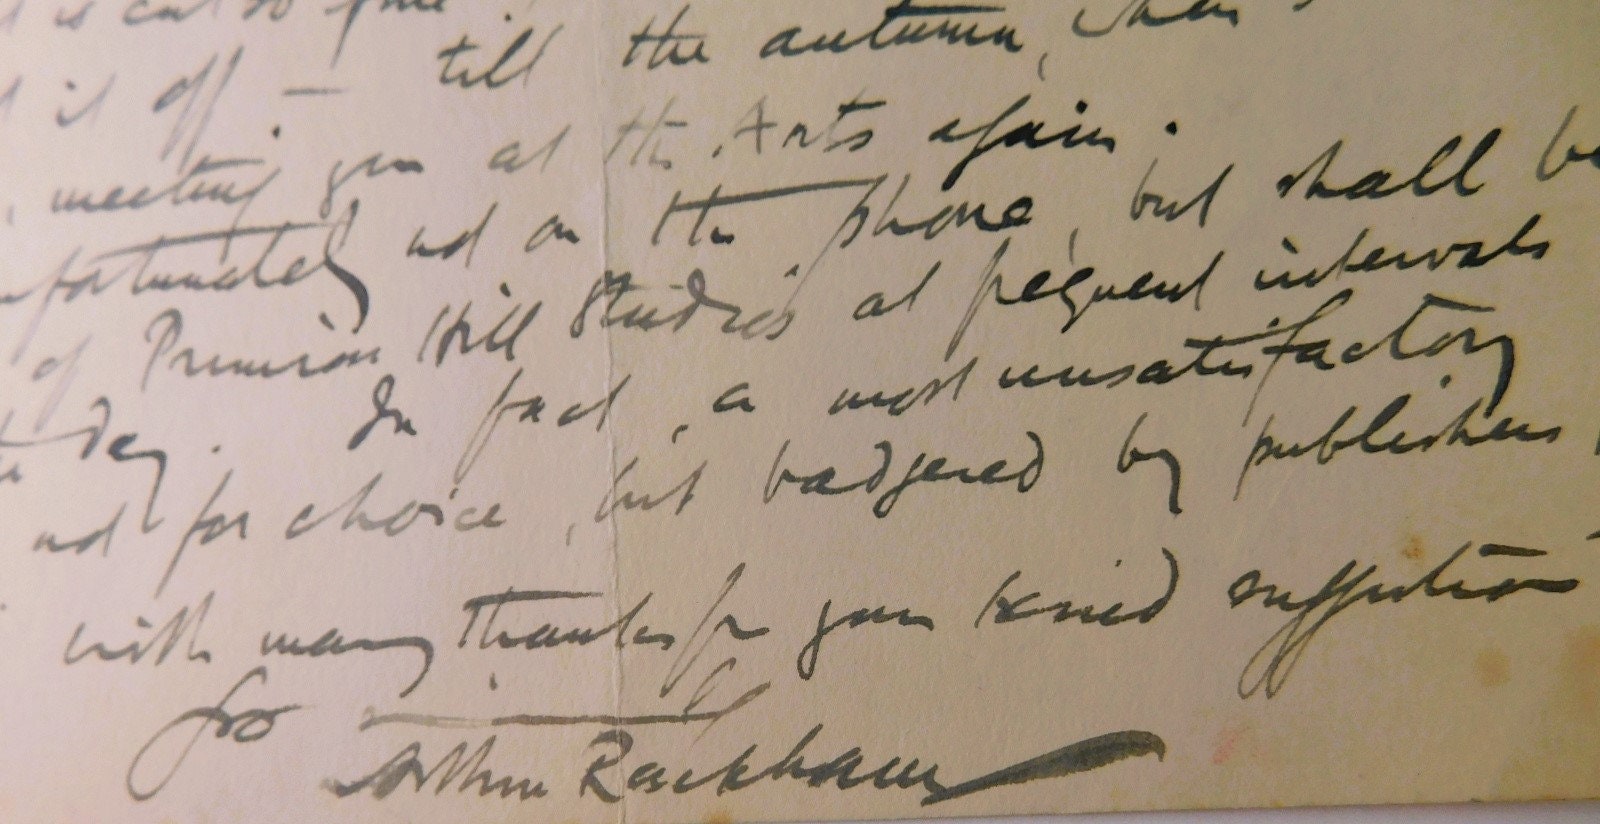 it is cut so fine
it off — till the autumn, when
meeting you at the Arts again.
unfortunately not on the phone, but shall be
of Primrose Hill Studios at frequent intervals
day. In fact, a most unsatisfactory
not for choice, but badgered by publishers
with many thanks for your kind suggestion
Arthur Rackham